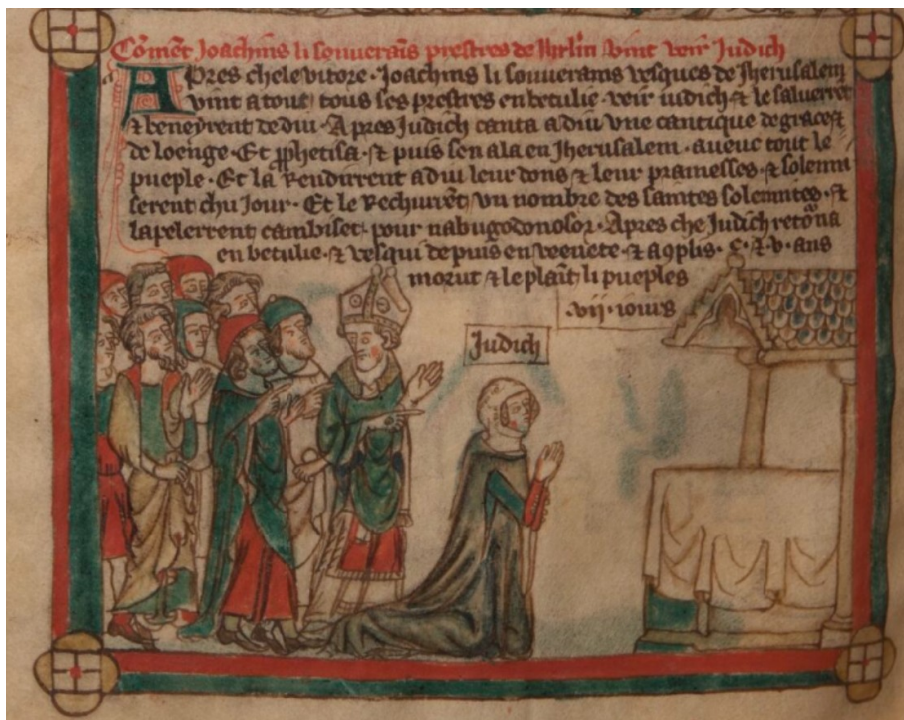 Co͂met Joachins li souuerai͂s prestres de Jhrl'm vint veir Judich
Apres chele vitore · Joachins li souuerains vesques de Jherusalem
vint a tout tous ses prestres en betulie · veir iudich ⁊ le saluerent
⁊ beneyrent de diu · Apres Judich canta a diu vne cantique de graces ⁊
de loenge · Et p̱phetisa · ⁊ puis sen ala en Jherusalem · aueuc tout le
pueple · Et la Rendirent a diu leur dons ⁊ leur pramesses ⁊ solemni
serent chu Jour · Et le Rechurēt vn nombre des saintes solemnites · ⁊
lapelerrent cambiset · pour nabugodonosor · Apres che Judich reto͂na
en betulie · ⁊ vesqui depuis en veeuete · ⁊ aꝯplis · C · ⁊ · v · ans
morut ⁊ le plai͂t li pueples
· vij · iours
Judich